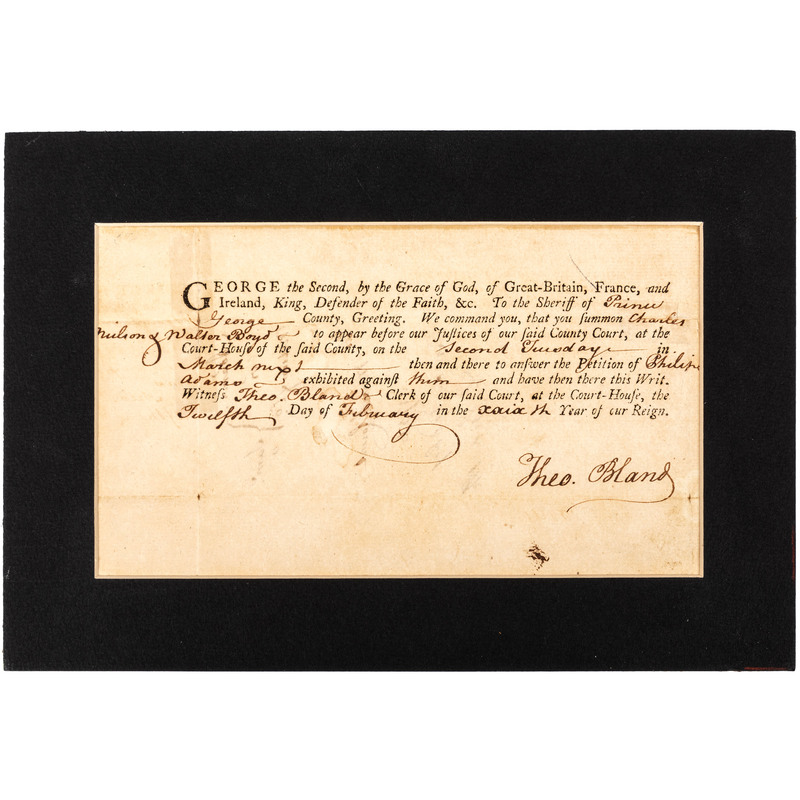 GEORGE the Second, by the Grace of God, of Great-Britain, France, and
Ireland, King, Defender of the Faith, &c. To the Sheriff of Prince
George County, Greeting. We command you, that you summon Charles
& Walter Boyd to appear before our Juſtices of our ſaid County Court, at the
Court-Houſe of the ſaid County, on the Second Tuesday in
March next then and there to anſwer the Petition of Philip
Adams exhibited againſt them and have then there this Writ.
Witneſs Theo. Bland Clerk of our ſaid Court, at the Court-Houſe, the
Twelfth Day of February in the xxixth Year of our Reign.
Theo. Bland